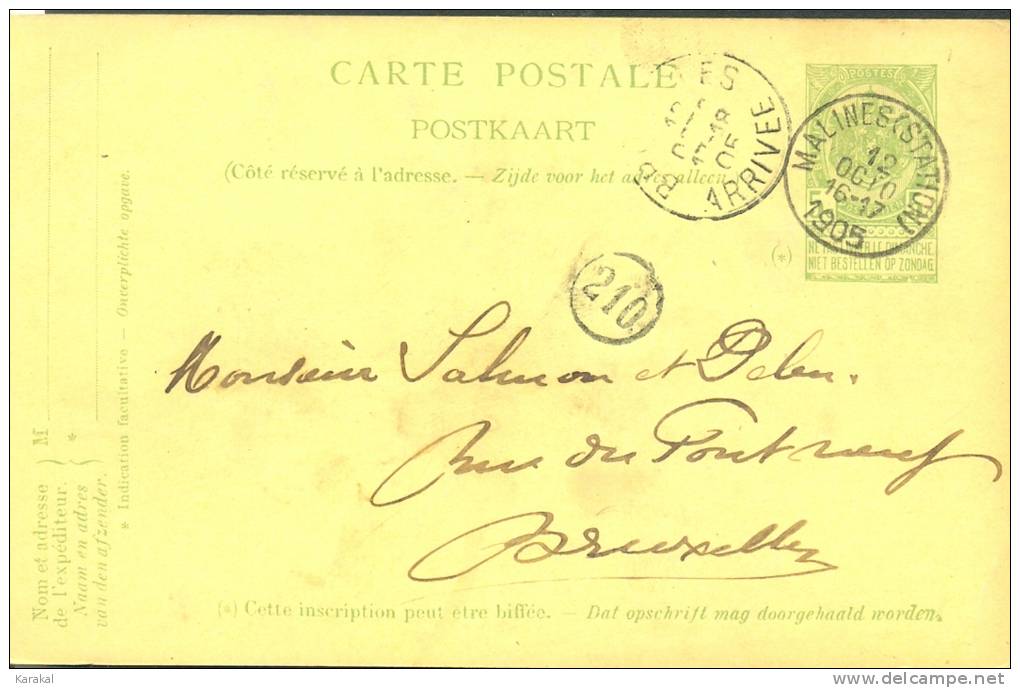 CARTE POSTALE
POSTKAART
(Côté réservé à l'adresse. — Zijde voor het adres alleen.)
POSTES
5
MALINES (STATION)
12
OCTO
16-17
1905
ARRIVEE
NE PAS LIVRER LE DIMANCHE
NIET BESTELLEN OP ZONDAG
(*)
210
Monsieur Salmon et
Rue du Pont neuf
Bruxelles
(*) Cette inscription peut être biffée. — Dat opschrift mag doorgehaald worden.
Nom et adresse
de l'expéditeur.
Naam en adres
van den afzender.
M
*
* Indication facultative — Onverplichte opgave.
Karakal
delcampe.net